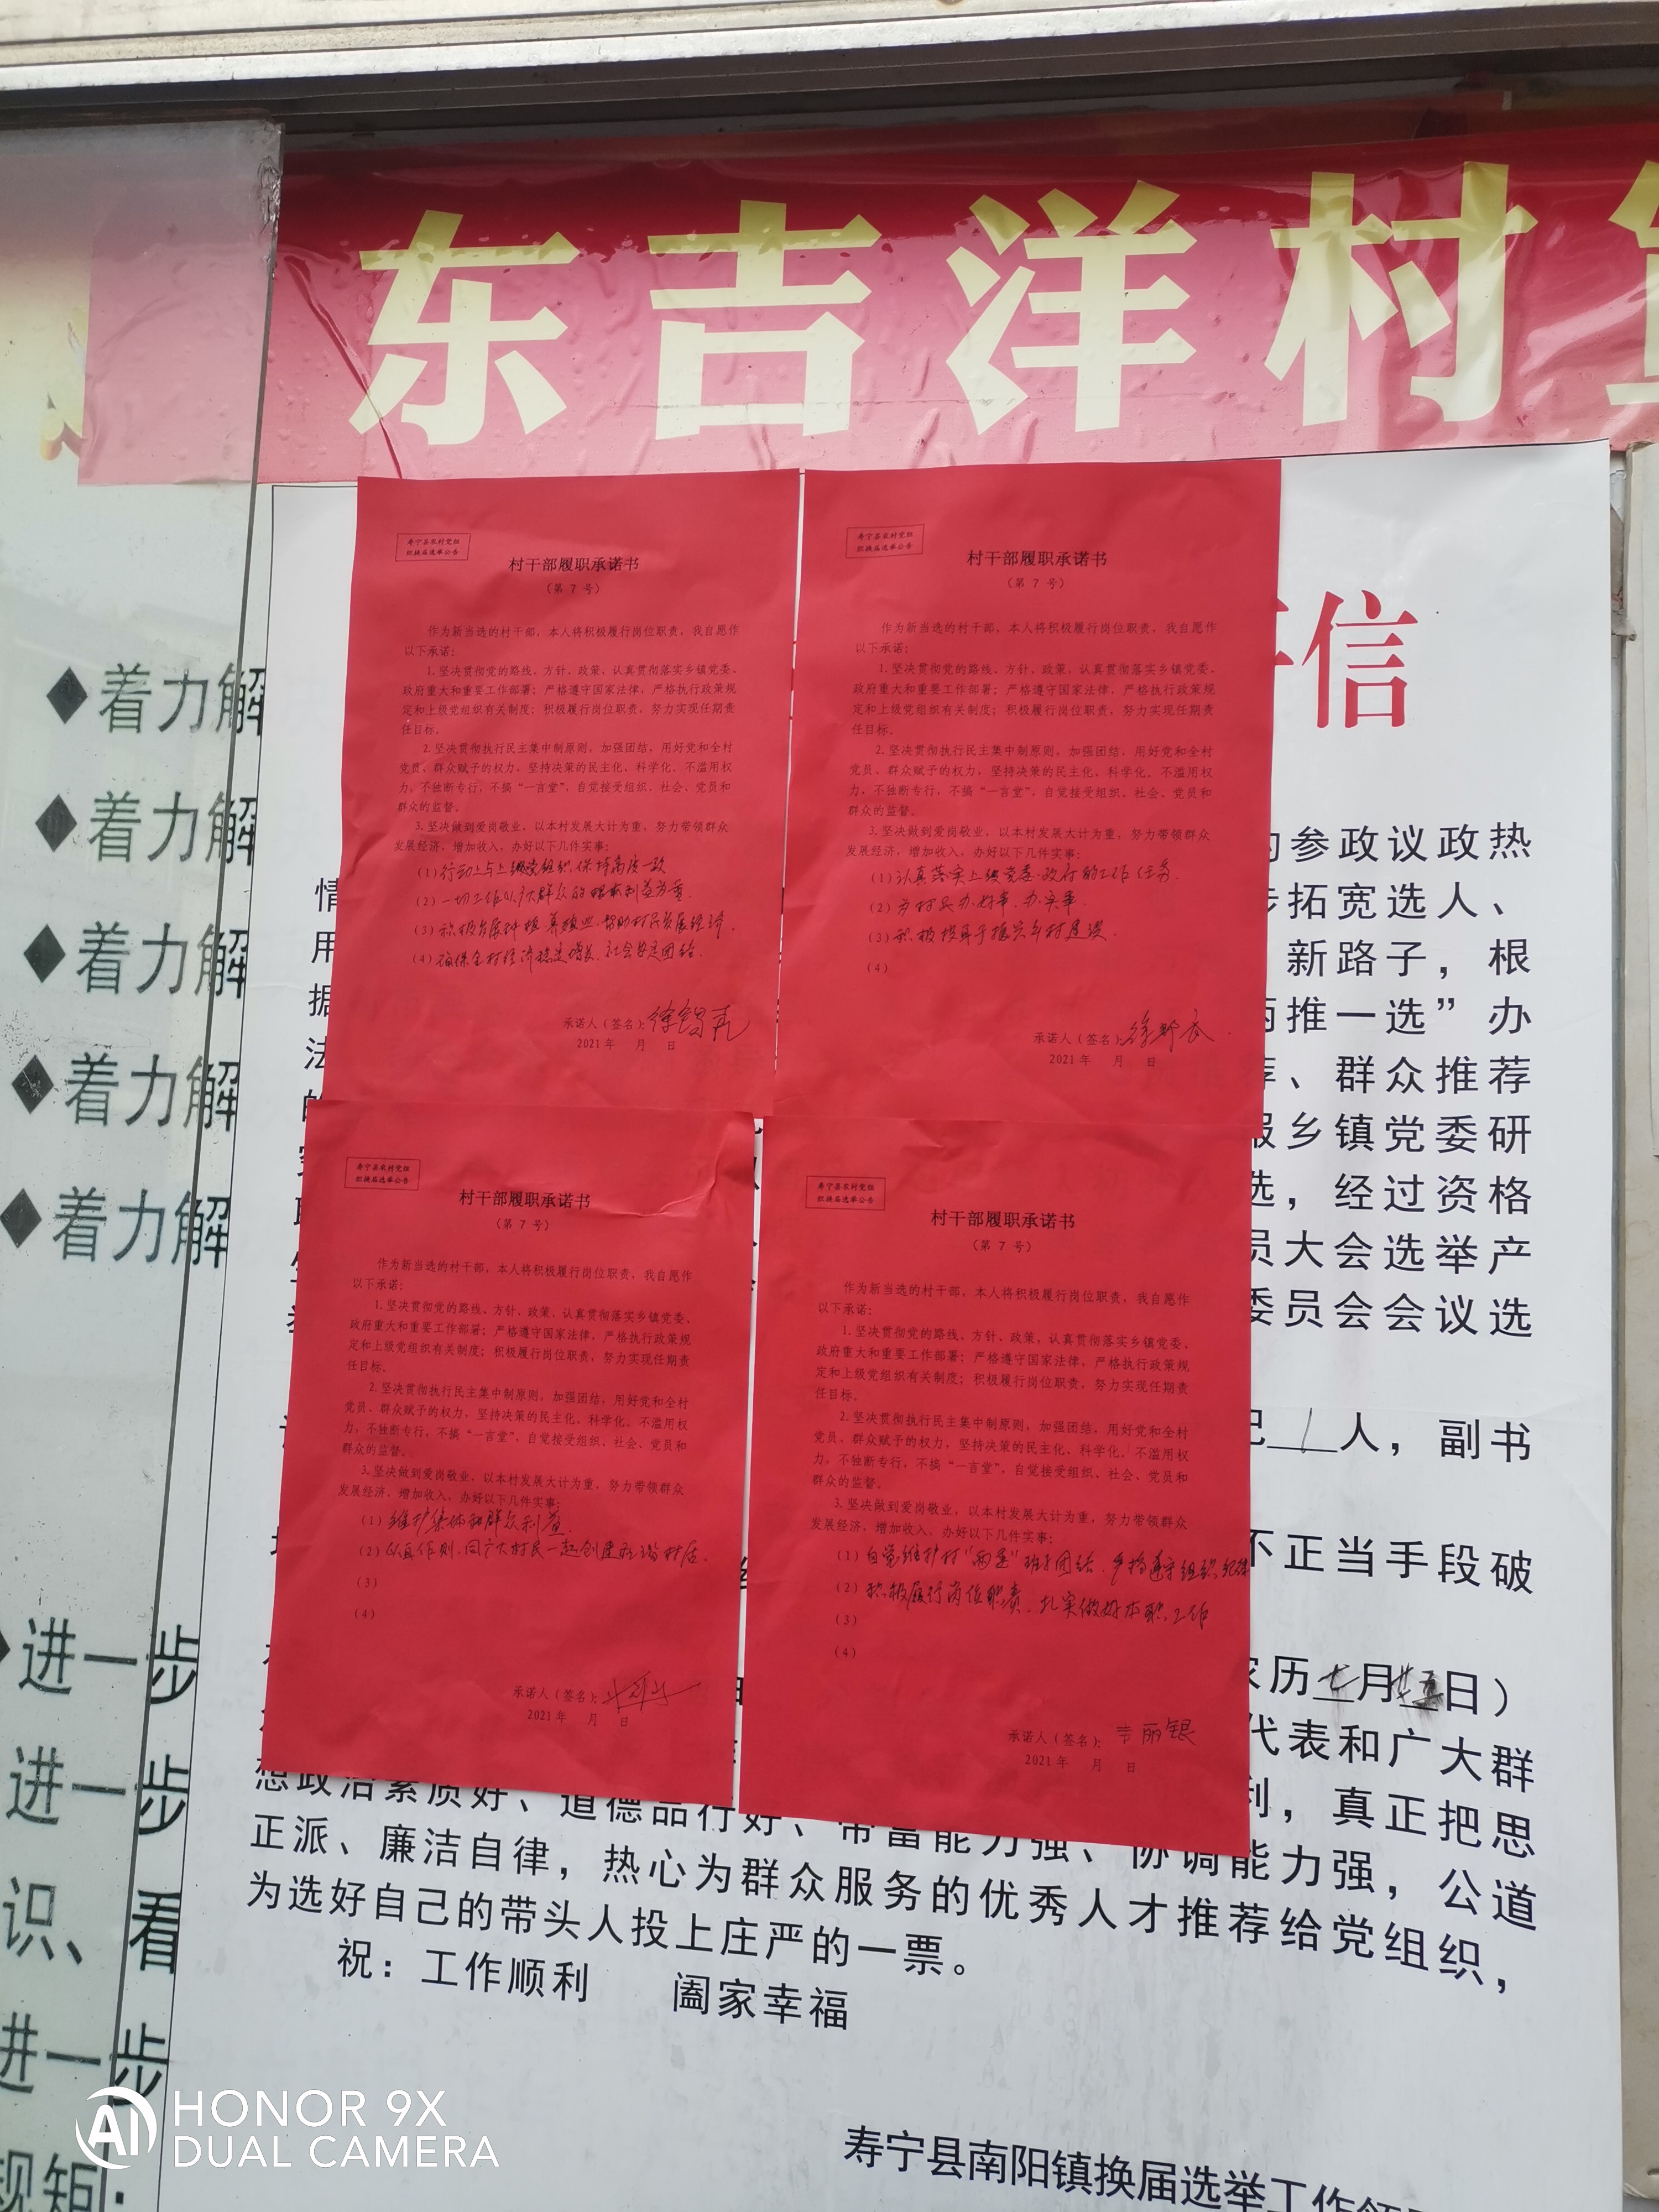 东吉洋村
寿宁县农村党组
织换届选举公告
村干部履职承诺书
（第 7 号）
作为新当选的村干部，本人将积极履行岗位职责，我自愿作
以下承诺：
1.坚决贯彻党的路线、方针、政策，认真贯彻落实乡镇党委、
政府重大和重要工作部署；严格遵守国家法律，严格执行政策规
定和上级党组织有关制度；积极履行岗位职责，努力实现任期责
任目标。
2.坚决贯彻执行民主集中制原则，加强团结，用好党和全村
党员、群众赋予的权力，坚持决策的民主化、科学化，不滥用权
力，不独断专行，不搞“一言堂”，自觉接受组织、社会、党员和
群众的监督。
3.坚决做到爱岗敬业，以本村发展大计为重，努力带领群众
发展经济，增加收入，办好以下几件实事：
（1）行动上与上级党组织保持高度一致
（2）一切工作以广大群众的根本利益为重
（3）积极发展种植养殖业，帮助村民发展经济．
（4）确保全村经济稳定增长．社会安定团结．
承诺人（签名）：
2021 年 月 日
寿宁县农村党组
织换届选举公告
村干部履职承诺书
（第 7 号）
作为新当选的村干部，本人将积极履行岗位职责，我自愿作
以下承诺：
1.坚决贯彻党的路线、方针、政策，认真贯彻落实乡镇党委、
政府重大和重要工作部署；严格遵守国家法律，严格执行政策规
定和上级党组织有关制度；积极履行岗位职责，努力实现任期责
任目标。
2.坚决贯彻执行民主集中制原则，加强团结，用好党和全村
党员、群众赋予的权力，坚持决策的民主化、科学化，不滥用权
力，不独断专行，不搞“一言堂”，自觉接受组织、社会、党员和
群众的监督。
3.坚决做到爱岗敬业，以本村发展大计为重，努力带领群众
发展经济，增加收入，办好以下几件实事：
（1）认真落实上级党委．政府的工作任务．
（2）为村民办好事．办实事．
（3）积极投身于振兴乡村建设．
（4）
承诺人（签名）：徐
2021 年 月 日
寿宁县农村党组
织换届选举公告
村干部履职承诺书
（第 7 号）
作为新当选的村干部，本人将积极履行岗位职责，我自愿作
以下承诺：
1.坚决贯彻党的路线、方针、政策，认真贯彻落实乡镇党委、
政府重大和重要工作部署；严格遵守国家法律，严格执行政策规
定和上级党组织有关制度；积极履行岗位职责，努力实现任期责
任目标。
2.坚决贯彻执行民主集中制原则，加强团结，用好党和全村
党员、群众赋予的权力，坚持决策的民主化、科学化，不滥用权
力，不独断专行，不搞“一言堂”，自觉接受组织、社会、党员和
群众的监督。
3.坚决做到爱岗敬业，以本村发展大计为重，努力带领群众
发展经济，增加收入，办好以下几件实事：
（1）维护集体和群众利益．
（2）以身作则．同广大村民一起创建和谐村居．
（3）
（4）
承诺人（签名）：
2021 年 月 日
寿宁县农村党组
织换届选举公告
村干部履职承诺书
（第 7 号）
作为新当选的村干部，本人将积极履行岗位职责，我自愿作
以下承诺：
1.坚决贯彻党的路线、方针、政策，认真贯彻落实乡镇党委、
政府重大和重要工作部署；严格遵守国家法律，严格执行政策规
定和上级党组织有关制度；积极履行岗位职责，努力实现任期责
任目标。
2.坚决贯彻执行民主集中制原则，加强团结，用好党和全村
党员、群众赋予的权力，坚持决策的民主化、科学化，不滥用权
力，不独断专行，不搞“一言堂”，自觉接受组织、社会、党员和
群众的监督。
3.坚决做到爱岗敬业，以本村发展大计为重，努力带领群众
发展经济，增加收入，办好以下几件实事：
（1）自觉维护村“两委”班子团结．严格遵守组织纪律
（2）积极履行岗位职责．扎实做好本职工作
（3）
（4）
承诺人（签名）：李丽银
2021 年 月 日
信
参政议政热
情
拓宽选人、
用
新路子，根
据
推一选”办
法
、群众推荐
乡镇党委研
，经过资格
员大会选举产
委员会会议选
人，副书
不正当手段破
农历七月廿五日）
代表和广大群
，真正把思
想政治素质好、道德品行好、带富能力强、协调能力强，公道
正派、廉洁自律，热心为群众服务的优秀人才推荐给党组织，
为选好自己的带头人投上庄严的一票。
祝：工作顺利 阖家幸福
寿宁县南阳镇换届选举工作
◆着力解
◆着力解
◆着力解
◆着力解
◆着力解
进一步
进一步
识、看
进一步
规矩：
AI HONOR 9X
DUAL CAMERA